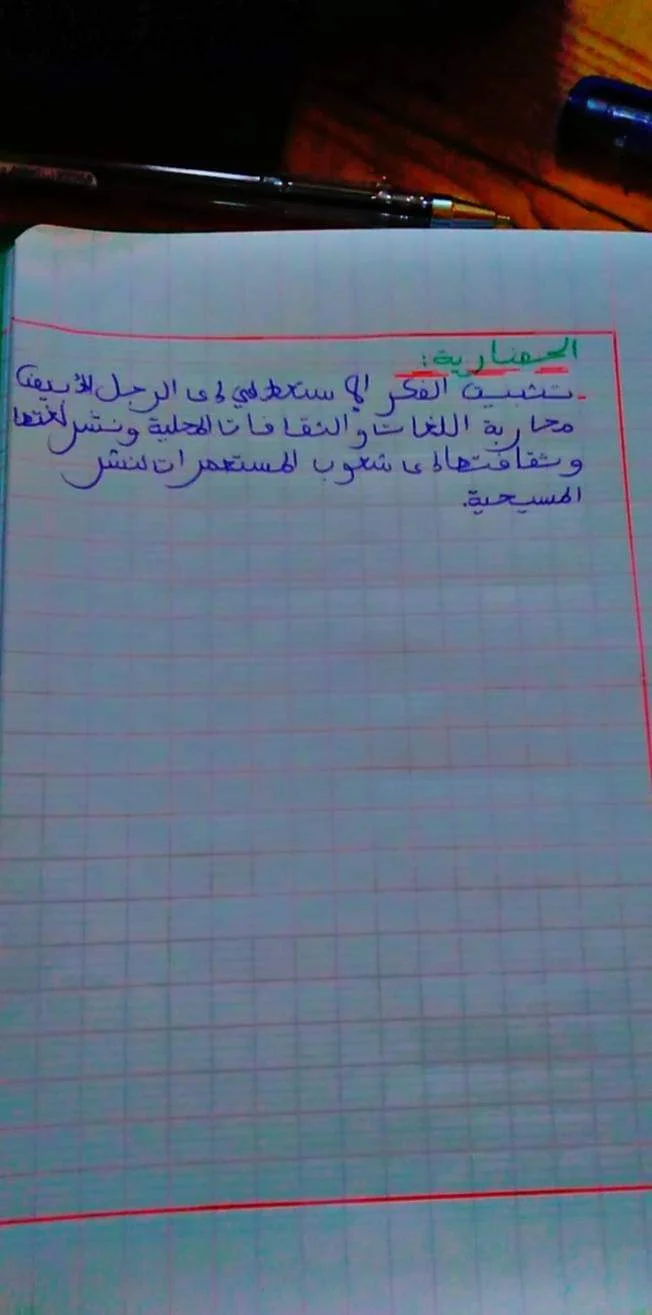 الحضارية:
- تثبيت الفكر الاستعطافي لدى الرجل الأبيض
محاربة اللغات والثقافات المحلية ونشر لغتها
وثقافتها لدى شعوب المستعمرات لنشر
المسيحية.